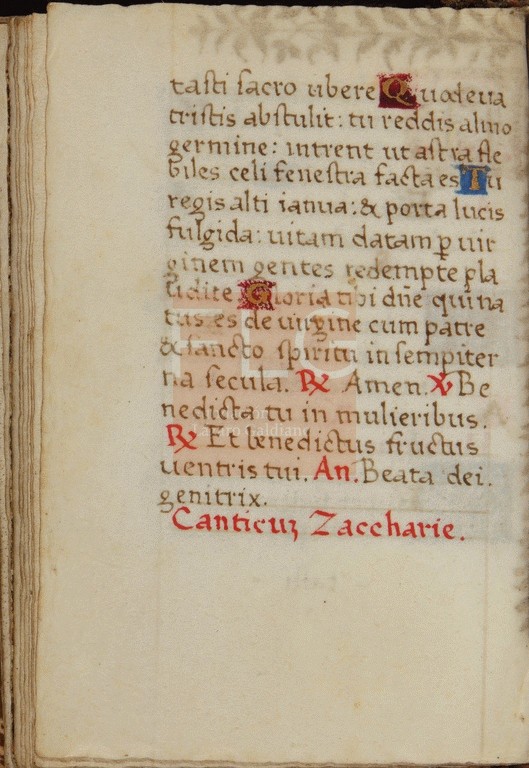 tasti sacro ubere Quod eva
tristis abstulit: tu reddis almo
germine: intrent ut astra fle
biles celi fenestra facta es Tu
regis alti ianua: & porta lucis
fulgida: uitam datam ꝑ uir
ginem gentes redempte pla
udite Gloria tibi dñe qui na
tus es de uirgine cum patre
& sancto spiritu in sempiter
na secula. ℟ Amen. ℣ Be
nedicta tu in mulieribus.
℟ Et benedictus fructus
uentris tui. An. Beata dei.
genitrix.
Canticuꝫ Zaccharie.
FLG
Lázaro Galdiano